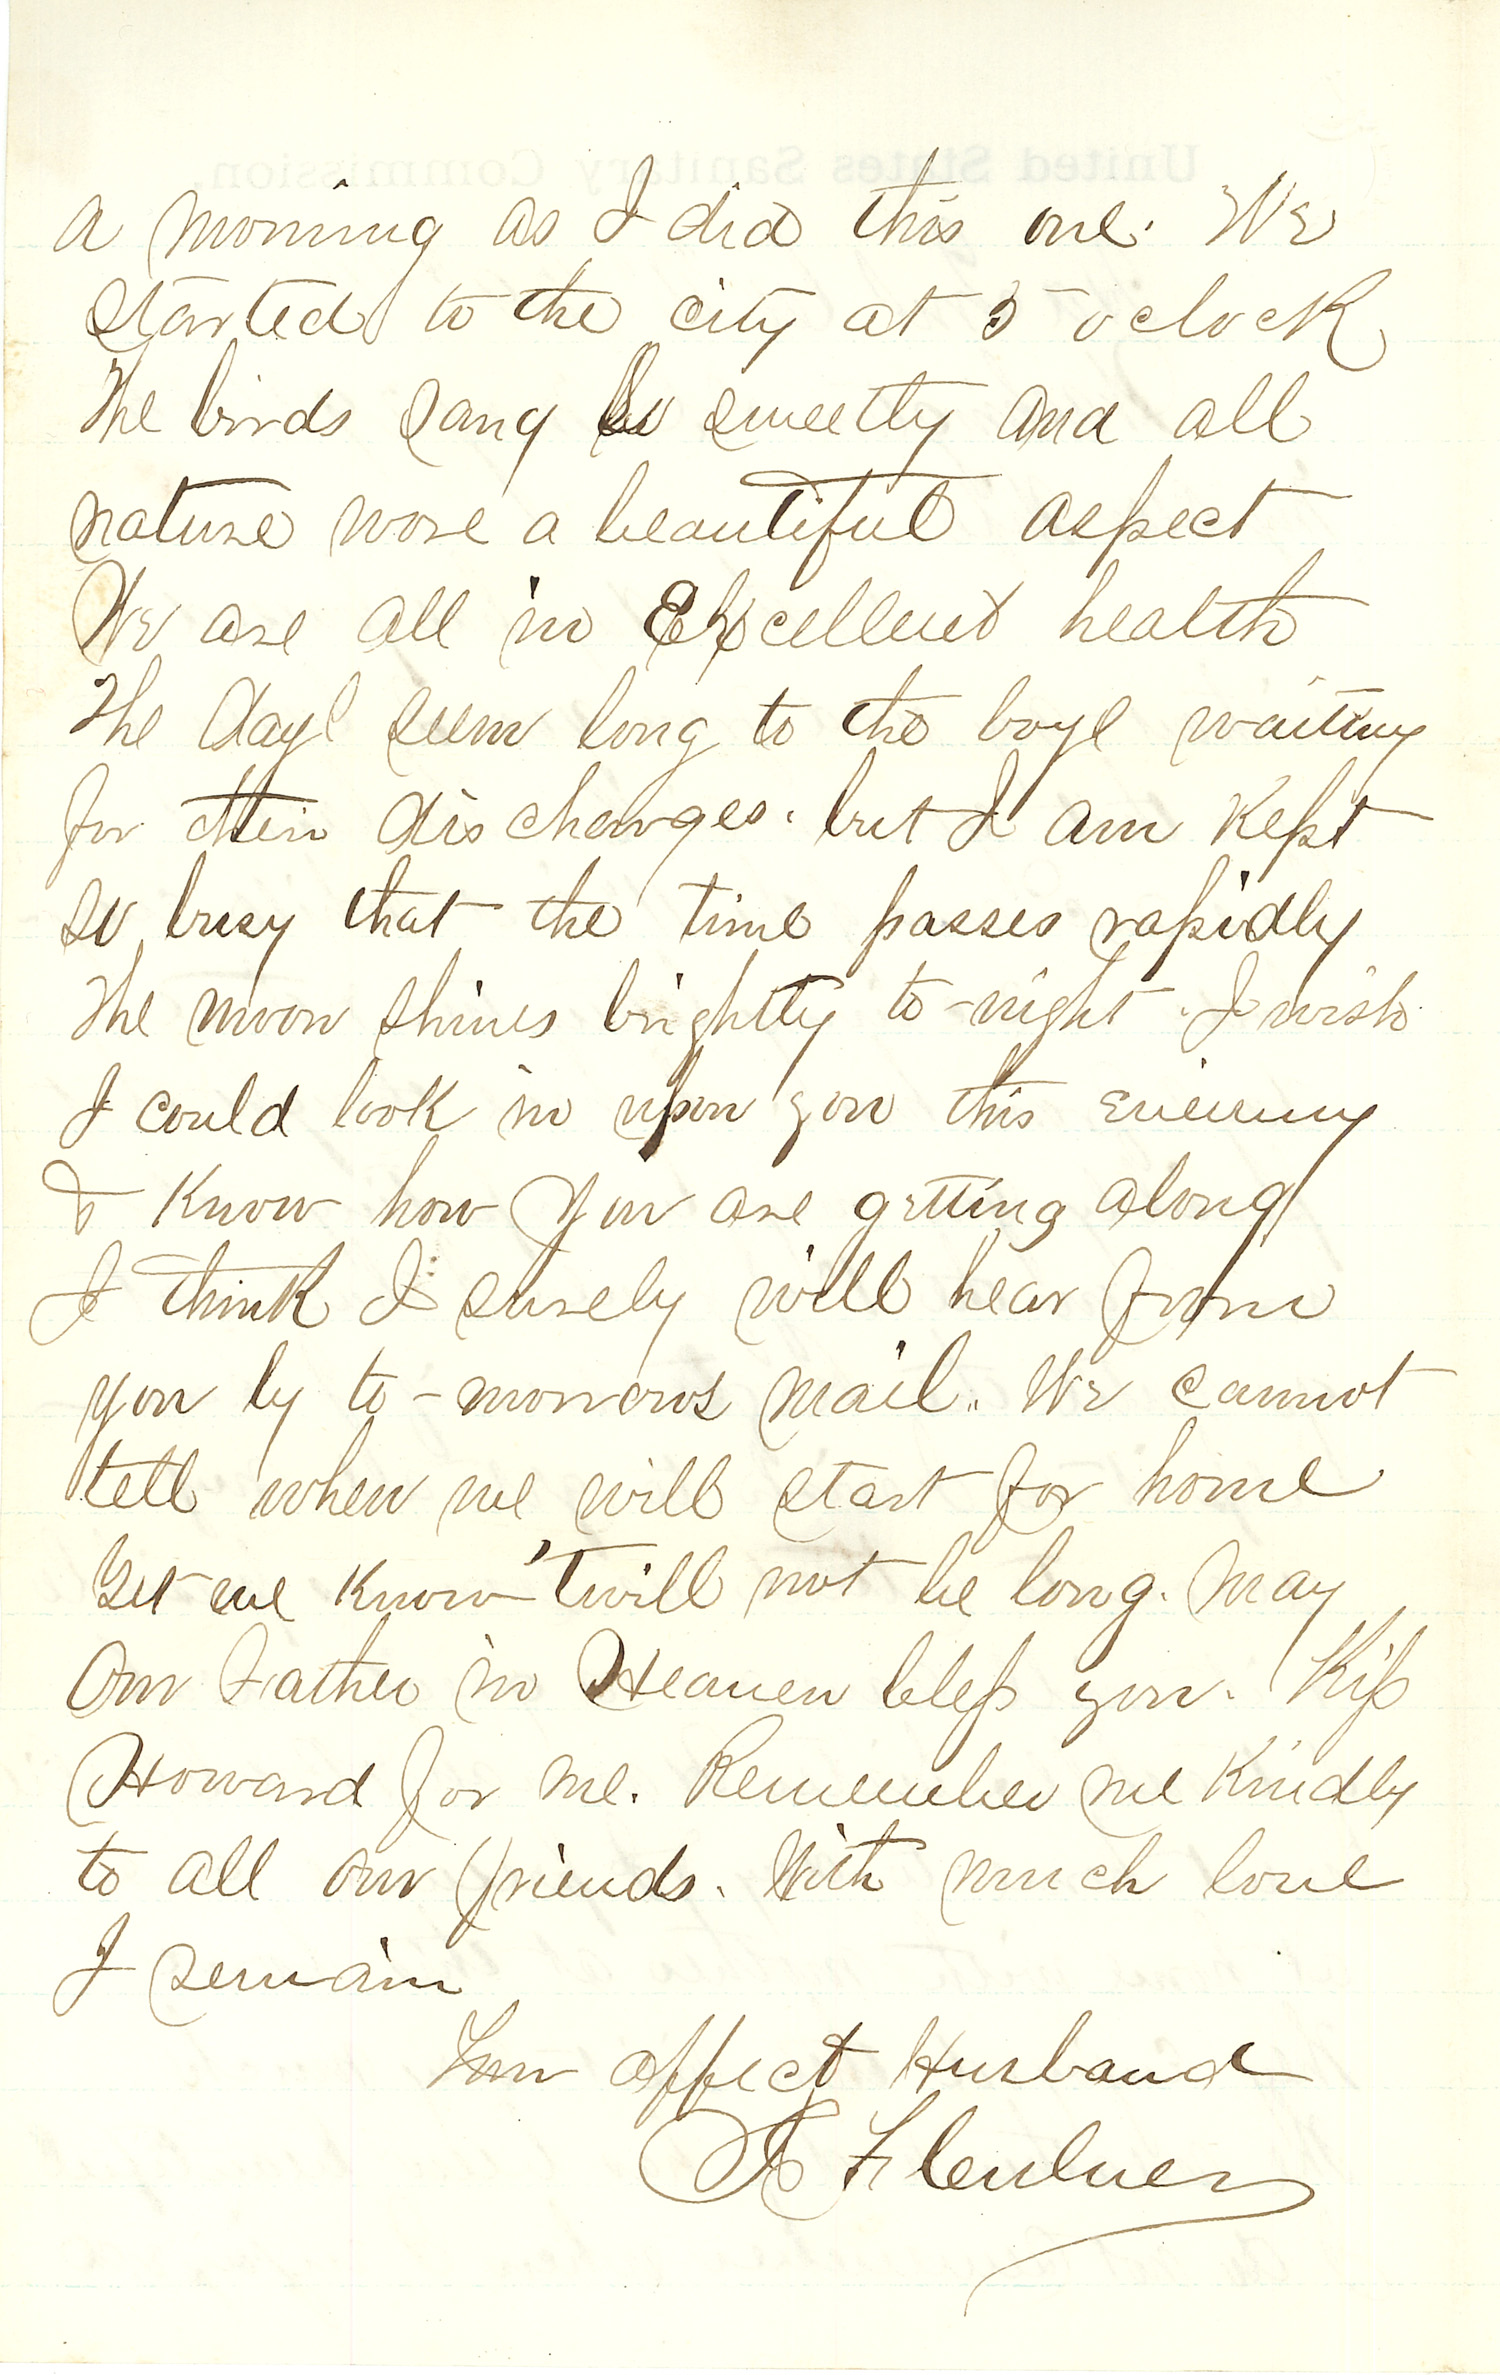 United States Sanitary Commission.
a morning as I did this one. We
started to the city at 5 oclock
The birds sang so sweetly and all
nature wore a beautiful aspect
We are all in Excellent health
The days seem long to the boys waiting
for their discharges. but I am kept
so busy that the time passes rapidly
The moon shines brightly to-night. I wish
I could look in upon you this evening
& know how you are getting along
I think I surely will hear from
you by to-morrows mail. We cannot
tell when we will start for home
Yet we know 'twill not be long. May
Our Father in Heaven bless you. Kiss
Howard for me. Remember me kindly
to all our friends. With much love
I remain
Your affect Husband